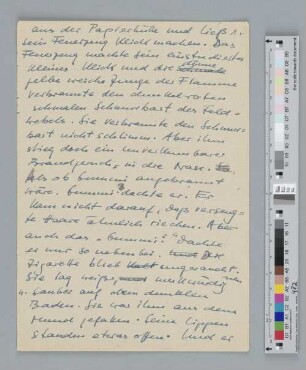 aus der Papierhülle und ließ s.
sein Feuerzeug klick machen. Das
Feuerzeug machte sein indiskretes
kleines Klick und die dünne
gelbe weiche Zunge der Flamme
verbrannte den dunkelroten
schmalen Schnurrbart des Feld-
webels. Sie verbrannte den Schnurr-
bart nicht schlimm. Aber ihm
stieg doch ein unverkennbarer
Brandgeruch in die Nase.
Als ob Gummi angebrannt
wäre. Gummi? dachte er. Er
kam nicht darauf, daß verseng-
te Haare ähnlich riechen. Aber
auch das: Gummi? dachte
er nur so nebenbei. Die
Zigarette blieb ungeraucht.
Sie lag weiß, merkwürdig
u. sauber auf dem dunklen
Boden. Sie war ihm aus dem
Mund gefallen. Seine Lippen
standen etwas offen. Und er